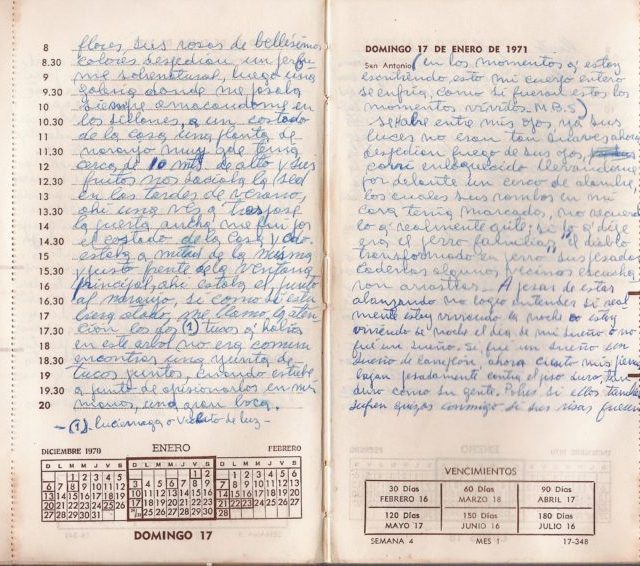 8 flores, sus rosas de bellísimos
8.30 colores despedían un perfu
9 me sobrenatural, luego una
9.30 galería donde me posaba
10 siempre amacandome en
10.30 los sillones, a un costado
11 de la casa una planta de
11.30 naranjo muy que tenía
12 cerca de 10 mts de alto y sus
12.30 frutos nos saciaba la sed
13 en las tardes de verano,
13.30 ahí una vez a traspase
14 la puerta ancha me fui por
14.30 el costado de la casa y cdo.
15 estaba a mitad de la misma
15.30 y justo frente de la ventana
16 principal, ahí estaba el, junto
16.30 al naranjo, si como si estu
17 biera atado, me llamo la aten
17.30 cion los dos (1) tucos q' había
18 en este arbol no era comun
18.30 encontrar una yunta de
19 tucos juntos, cuando estube
19.30 a punto de aprisionarlos en mis
20 manos, una gran boca.
-(1) luciernaga o Vichito de luz-
DICIEMBRE 1970 ENERO FEBRERO
D L M M J V S
1 2 3 4 5
6 7 8 9 10 11 12
13 14 15 16 17 18 19
20 21 22 23 24 25 26
27 28 29 30 31
D L M M J V S
1 2
3 4 5 6 7 8 9
10 11 12 13 14 15 16
17 18 19 20 21 22 23
24/31 25 26 27 28 29 30
D L M M J V S
1 2 3 4 5 6
7 8 9 10 11 12 13
14 15 16 17 18 19 20
21 22 23 24 25 26 27
28
DOMINGO 17
DOMINGO 17 DE ENERO DE 1971
San Antonio (en los momentos q' estoy
escribiendo, esto mi cuerpo entero
se enfría, como si fueran estos los
momentos vividos. M.B.S)
se abre entre mis ojos, ya sus
luces no eran tan suaves ahora
despedían fuego de sus ojos,
corrí enloquecido llevandome
por delante un cerco de alambre
los cuales sus rombos en mi
cara tenía marcados, no recuerdo
lo q' realmente grité; si lo q' dije
era el perro familiar, el diablo
transformado en perro sus pesadas
cadenas algunos vecinos escucha
ron arrastrar - A pesar de estar
alcanzando no logro entender si real
mente estoy viviendo la noche o estoy
viviendo de noche el dia de mi sueño o no
fue un sueño. Si fue un sueño un
sueño de, ahora cuanto mis piernas
bajan pesadamente contra el piso duro, tan
duro como su gente. Pobres si ellos tambien
sufren quizas conmigo si sus risas fueran
VENCIMIENTOS
30 Días FEBRERO 16 60 Días MARZO 18 90 Días ABRIL 17
120 Días MAYO 17 150 Días JUNIO 16 180 Días JULIO 16
SEMANA 4 MES 1 17-348